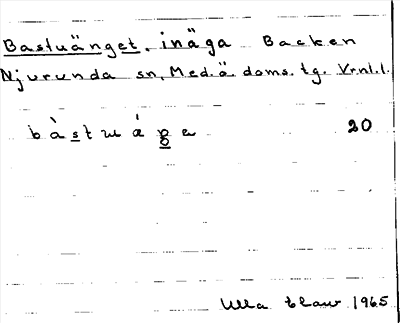 Bastuänget, inäga Backen
Njurunda sn, Med.ä. doms. tg. Vrnl.l.
20
Ulla 1965